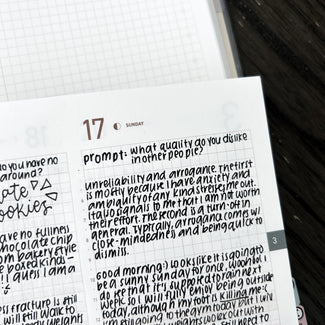 17 SUNDAY
prompt: what quality do you dislike
in other people?
unreliability and arrogance. The first
is mostly because I have anxiety and
ambiguity of any kind stresses me out.
It also signals to me that I am not worth
their effort. The second is a turn-off in
general. Typically, arrogance comes w/
close-mindedness and being quick to
dismiss.
good morning :) Looks like it is going to
be a sunny Sunday for once, woohoo! I
week so I will fully enjoy being outside
today, although my foot is killing me :(
I'm still going to the gym today but I will
3
do you have no
around?
cookies
have no fullness
chocolate chip
om bakery style
e boxed kinds-
I guess I am a
ss fracture is still
still walk to